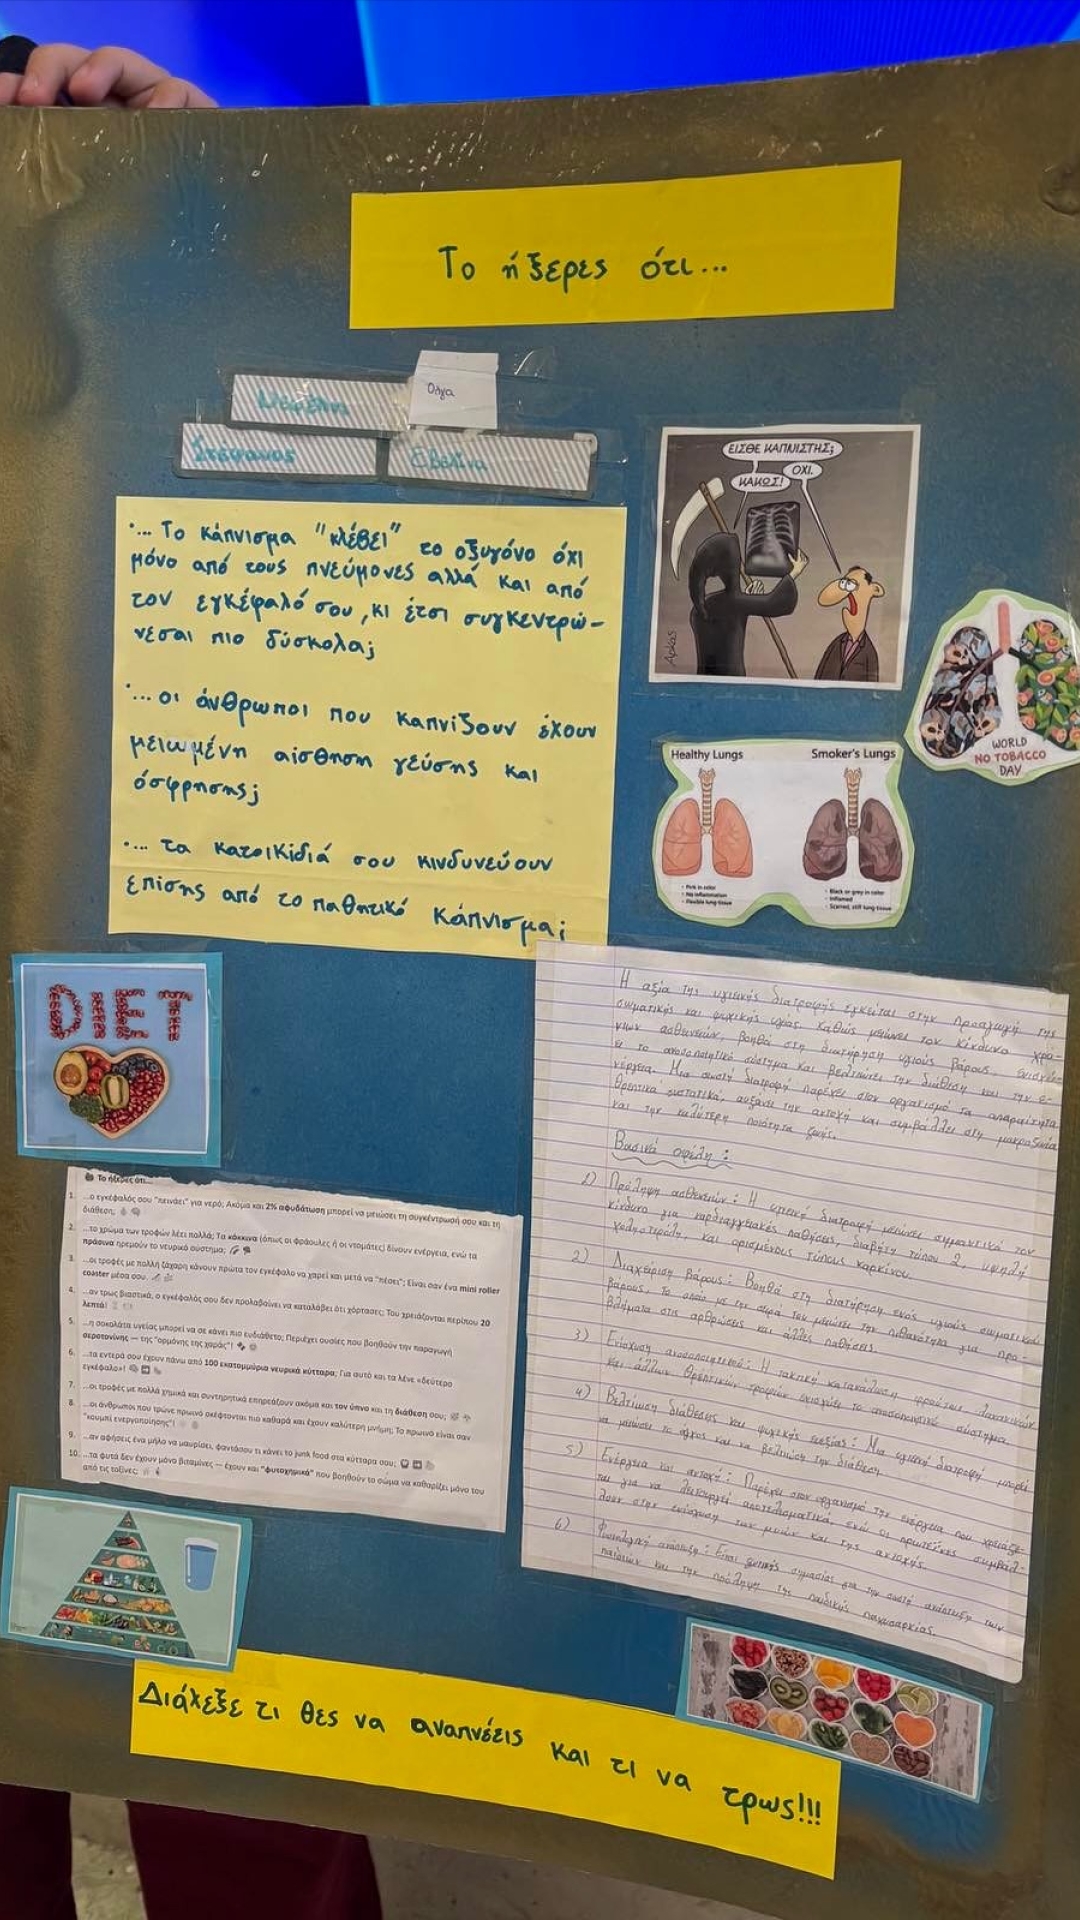 Το ήξερες ότι...
Όλγα
Στέφανος
Εβελίνα
ΕΙΣΘΕ ΚΑΠΝΙΣΤΗΣ;
ΟΧΙ.
ΚΑΚΩΣ!
Αρκάς
·... Το κάπνισμα "κλέβει" το οξυγόνο όχι
μόνο από τους πνεύμονες αλλά και από
τον εγκέφαλό σου, κι έτσι συγκεντρώ-
νεσαι πιο δύσκολα;
·... οι άνθρωποι που καπνίζουν έχουν
μειωμένη αίσθηση γεύσης και
όσφρησης;
·... τα κατοικίδιά σου κινδυνεύουν
επίσης από το παθητικό κάπνισμα;
WORLD
NO TOBACCO
DAY
Healthy Lungs
Smoker's Lungs
• Pink in color
• No inflammation
• Flexible lung tissue
• Black or grey in color
• Inflamed
• Scarred, stiff lung tissue
DIET
Η αξία της υγιεινής διατροφής έγκειται στην προαγωγή της
σωματικής και ψυχικής υγείας, καθώς μειώνει τον κίνδυνο χρό-
νιων ασθενειών, βοηθά στη διατήρηση υγιούς βάρους, ενισχύ-
ει το ανοσοποιητικό σύστημα και βελτιώνει την διάθεση και την ε-
νέργεια. Μια σωστή διατροφή παρέχει στον οργανισμό τα απαραίτητα
θρεπτικά συστατικά, αυξάνει την αντοχή και συμβάλλει στη μακροζωία
και την καλύτερη ποιότητα ζωής.
Βασικά οφέλη:
1) Πρόληψη ασθενειών: Η υγιεινή διατροφή μειώνει σημαντικά τον
κίνδυνο για καρδιαγγειακές παθήσεις, διαβήτη τύπου 2, υψηλή
χοληστερόλη, και ορισμένους τύπους καρκίνου.
2) Διαχείριση βάρους: Βοηθά στη διατήρηση ενός υγιούς σωματικού
βάρους, το οποίο με την σειρά του μειώνει την πιθανότητα για προ-
βλήματα στις αρθρώσεις και άλλες παθήσεις.
3) Ενίσχυση ανοσοποιητικού: Η τακτική κατανάλωση φρούτων, λαχανικών
και άλλων θρεπτικών τροφών ενισχύει το ανοσοποιητικό σύστημα.
4) Βελτίωση διάθεσης και ψυχικής ευεξίας: Μια υγιεινή διατροφή μπορεί
να μειώσει το άγχος και να βελτιώσει την διάθεση.
5) Ενέργεια και αντοχή: Παρέχει στον οργανισμό την ενέργεια που χρειάζε-
ται για να λειτουργεί αποτελεσματικά, ενώ οι πρωτεΐνες συμβάλ-
λουν στην ενίσχυση των μυών και της αντοχής.
6) Φυσιολογική ανάπτυξη: Είναι ζωτικής σημασίας για την σωστή ανάπτυξη των
παιδιών και την πρόληψη της παιδικής παχυσαρκίας.
Το ήξερες ότι...
1. ...ο εγκέφαλός σου "πεινάει" για νερό; Ακόμα και 2% αφυδάτωση μπορεί να μειώσει τη συγκέντρωσή σου και τη
διάθεση;
2. ...το χρώμα των τροφών λέει πολλά; Τα κόκκινα (όπως οι φράουλες ή οι ντομάτες) δίνουν ενέργεια, ενώ τα
πράσινα ηρεμούν το νευρικό σύστημα;
3. ...οι τροφές με πολλή ζάχαρη κάνουν πρώτα τον εγκέφαλο να χαρεί και μετά να "πέσει"; Είναι σαν ένα mini roller
coaster μέσα σου.
4. ...αν τρως βιαστικά, ο εγκέφαλός σου δεν προλαβαίνει να καταλάβει ότι χόρτασες; Του χρειάζονται περίπου 20
λεπτά!
5. ...η σοκολάτα υγείας μπορεί να σε κάνει πιο ευδιάθετο; Περιέχει ουσίες που βοηθούν την παραγωγή
σεροτονίνης — της "ορμόνης της χαράς"!
6. ...τα εντερά σου έχουν πάνω από 100 εκατομμύρια νευρικά κύτταρα; Για αυτό και τα λένε «δεύτερο
εγκέφαλο»!
7. ...οι τροφές με πολλά χημικά και συντηρητικά επηρεάζουν ακόμα και τον ύπνο και τη διάθεση σου;
8. ...οι άνθρωποι που τρώνε πρωινό σκέφτονται πιο καθαρά και έχουν καλύτερη μνήμη; Το πρωινό είναι σαν
"κουμπί ενεργοποίησης"!
9. ...αν αφήσεις ένα μήλο να μαυρίσει, φαντάσου τι κάνει το junk food στα κύτταρα σου;
10. ...τα φυτά δεν έχουν μόνο βιταμίνες — έχουν και "φυτοχημικά" που βοηθούν το σώμα να καθαρίζει μόνο του
από τις τοξίνες;
Διάλεξε τι θες να αναπνέεις και τι να τρως!!!